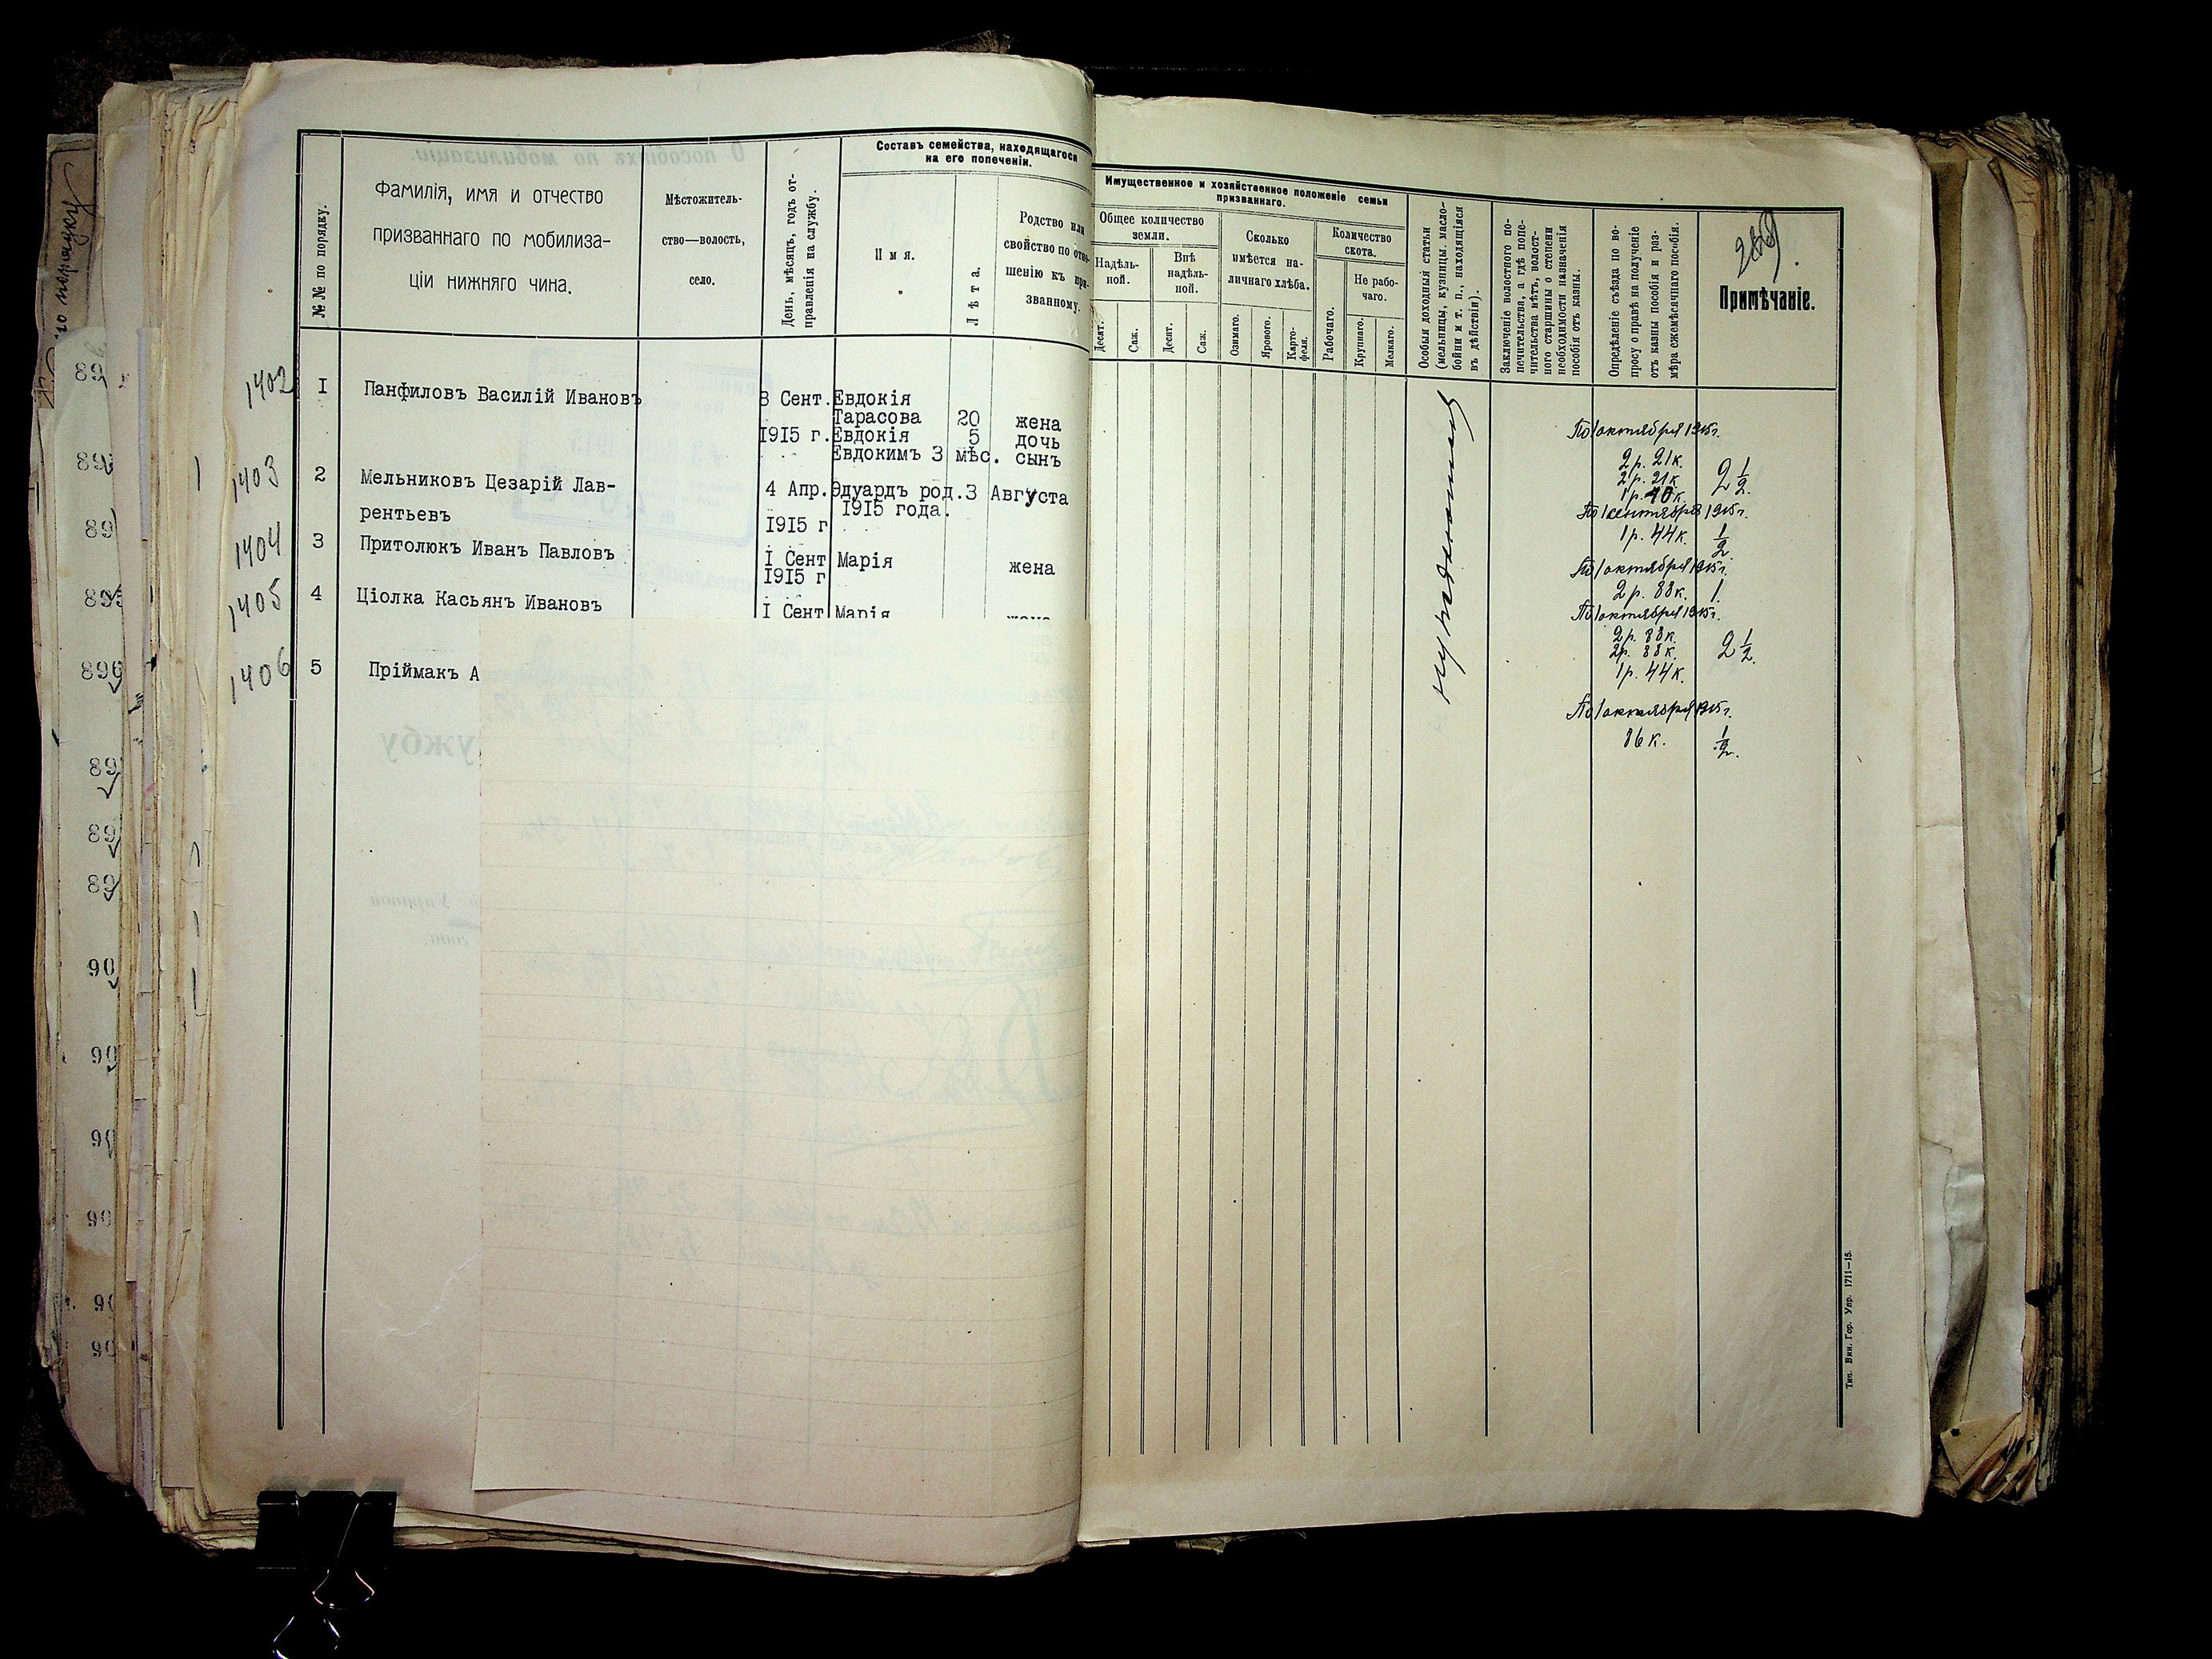 №№ по порядку.
Фамилія, имя и отчество
призваннаго по мобилиза-
ціи нижняго чина.
Мѣстожитель-
ство—волость,
село.
День, мѣсяцъ, годъ от-
правленія на службу.
Составъ семейства, находящагося
на его попеченіи.
Имя.
Лѣта.
Родство или
свойство по отно-
шенію къ при-
званному.
Имущественное и хозяйственное положеніе семьи
призваннаго.
Общее количество
земли.
Надѣль-
ной.
Внѣ
надѣль-
ной.
Десят.
Саж.
Десят.
Саж.
Сколько
имѣется на-
личнаго хлѣба.
Озимаго.
Ярового.
Карто-
феля.
Количество
скота.
Рабочаго.
Не рабо-
чаго.
Крупнаго.
Мелкаго.
Особыя доходныя статьи
(мельницы, кузницы, масло-
бойни и т. п., находящіяся
въ дѣйствіи).
Заключеніе волостного по-
печительства, а гдѣ попе-
чительства нѣтъ, волост-
ного старшины о степени
необходимости назначенія
пособія отъ казны.
Опредѣленіе съѣзда по во-
просу о правѣ на полученіе
отъ казны пособія и раз-
мѣра ежемѣсячнаго пособія.
Примѣчаніе.
1402 I Панфиловъ Василій Ивановъ 8 Сент. Евдокія
Тарасова 20 жена
1915 г. Евдокія 5 дочь
Евдокимъ 3 мѣс. сынъ
По 1 октября 1915 г.
2 р. 21 к.
2 р. 21 к. 2 1/2.
1 р. 10 к.
1403 2 Мельниковъ Цезарій Лав- 4 Апр. Эдуардъ род. 3 Августа
рентьевъ 1915 года.
1915 г
По 1 сентября 1915 г.
1 р. 44 к. 1/2.
1404 3 Притолюкъ Иванъ Павловъ I Сент Марія жена
1915 г
По 1 октября 1915 г.
2 р. 88 к. 1.
1405 4 Ціолка Касьянъ Ивановъ I Сент Марія жена
По 1 октября 1915 г.
2 р. 88 к.
2 р. 88 к. 2 1/2.
1 р. 44 к.
1406 5 Пріймакъ А
По 1 октября 1915 г.
86 к. 1/2.
Тип. Вин. Гор. Упр. 1711—15.